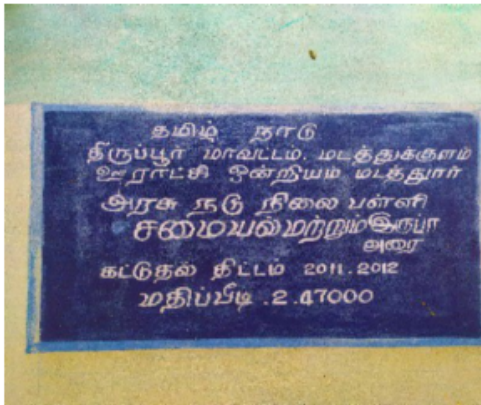 தமிழ் நாடு
திருப்பூர் மாவட்டம். மடத்துக்குளம்
ஊராட்சி ஒன்றியம் மடத்தூர்
அரசு நடு நிலை பள்ளி
சமையல்மற்றும் இருபா
அரை
கட்டுதல் திட்டம் 2011.2012
மதிப்பீடி.2.47000